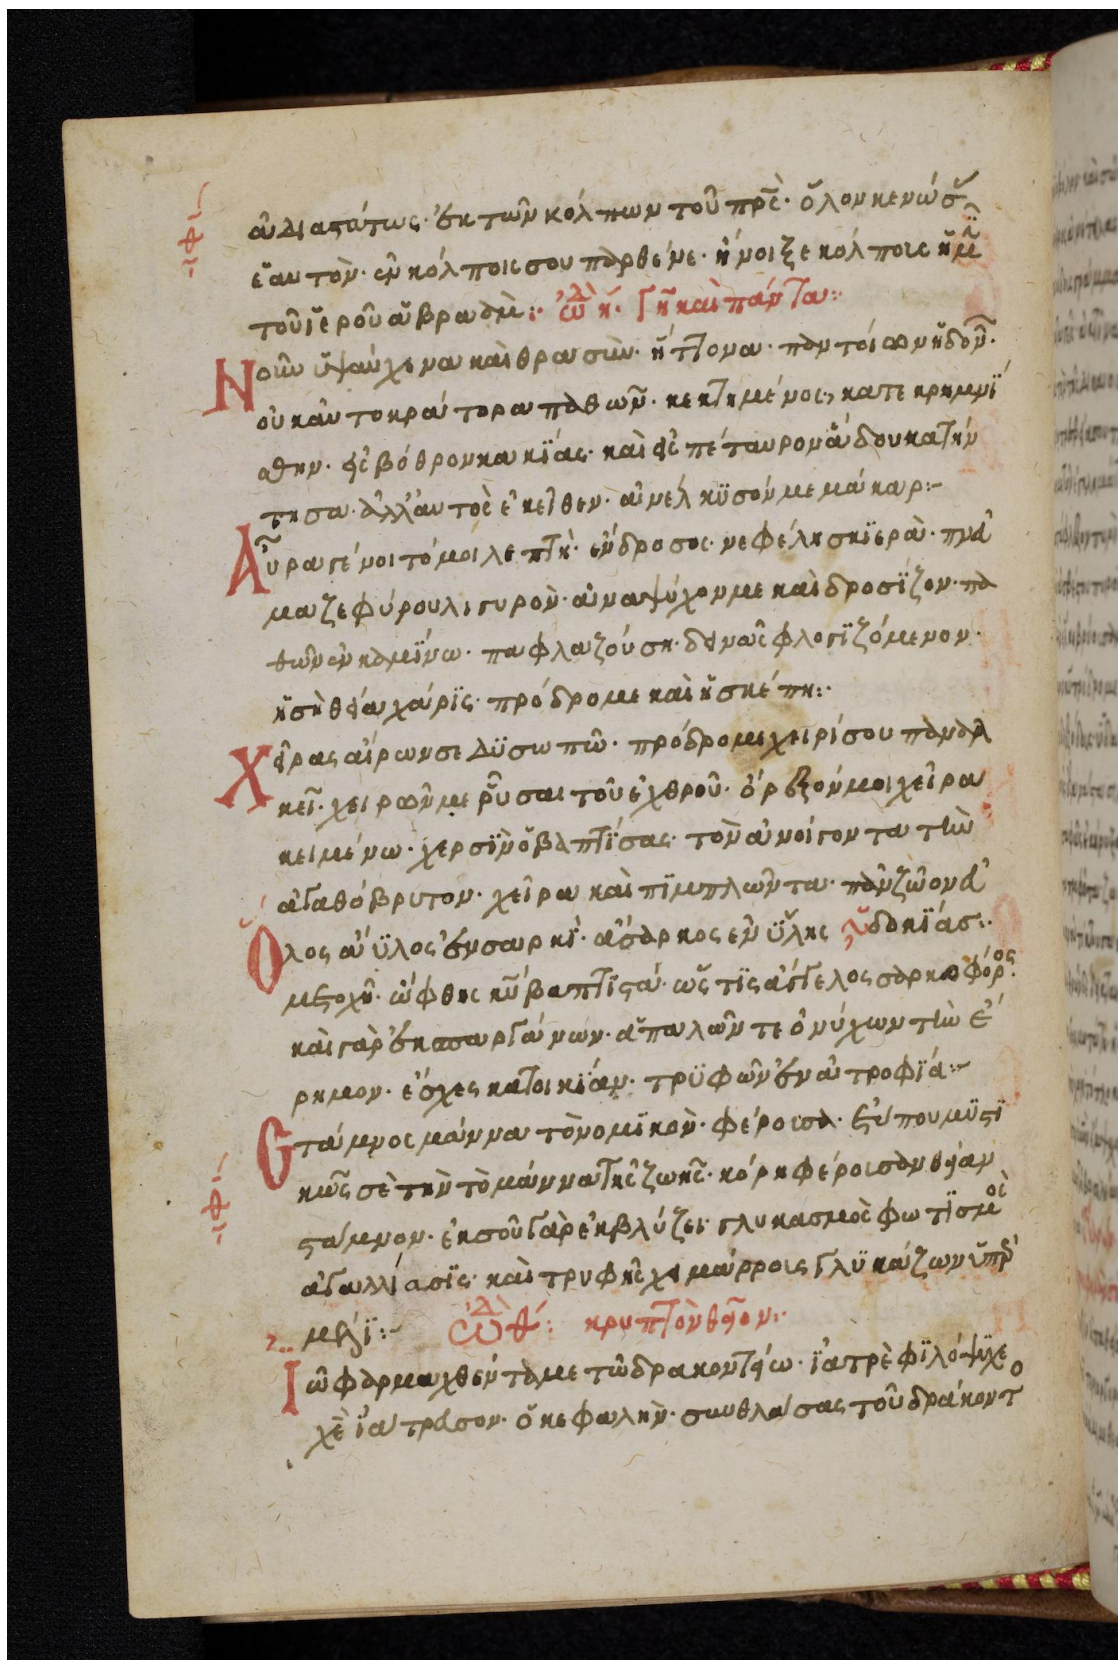 ἀδιαστάτως· ἐκ τῶν κόλπων τοῦ πρς· ὅλον κενώσ
ἑαυτὸν· ἐν κόλποις σου παρθένε· ἤνοιξε κόλποις ἡμῖ
τοῦ ἱεροῦ ἀβραάμ :· ᾠδ η· γῆ καὶ πάντα :·
Νοῦν ὑψαύχενα καὶ θρασὺν· ἥττονα· παντοίων ἡδονῶν·
οὐκ αὐτοκράτορα παθῶν· κεκτημένος, κατεκρημνί
σθην· εἰς βόθρον κακίας· καὶ εἰς πέταυρον ἅδου κατήν
τησα· ἀλλ' αὐτὸς ἐκεῖθεν· ἀνέλκυσόν με μάκαρ :-
Αὔρα γένοιτό μοι λεπτὴ· ἔνδροσος· νεφέλη σκιερὰ· πνεῦ
μα ζεφύρου λιγυρὸν· ἀναψύχον με καὶ δροσίζον· πα
θῶν ἐν καμίνω· παφλαζούση· δεινῶς φλογιζόμενον·
ἡ σὴ θεία χάρις· πρόδρομε καὶ ἡ σκέπη :·
Χεῖρας αἴρων σε δυσωπῶ· πρόδρομε χειρί σου παναλ
κεῖ· χειρῶν με ῥῦσαι τοῦ ἐχθροῦ· ὄρεξόν μοι χεῖρα
κειμένω· χερσὶν ὁ βαπτίσας· τὸν ἀνοίγοντα τὴν
ἀγαθόβρυτον· χεῖρα καὶ πιμπλῶντα· πᾶν ζῶον εὐ
δοκίας :·
Ὅλος ἄϋλος ἐν σαρκὶ· ἄσαρκος ἐν ὕλης
μετοχῆ· ὤφθης βαπτιστά· ὥς τις ἄγγελος σαρκοφόρος·
καὶ γὰρ ἐκ σπαργάνων· ἁπαλῶν τε ὀνύχων τὴν ἔ
ρημον· ἔσχες κατοικίαν· τρυφῶν ἐν ἀτροφία :-
Στάμνος μάννα τὸ νομικὸν· φέροισα· ἐτύπου μυστι
κῶς σὲ τὴν τὸ μάννα τῆς ζωῆς· κόρη φέροισαν θείαν
στάμνον· ἐκ σοῦ γὰρ ἐκβλύζει· γλυκασμὸς φωτισμὸς
ἀγαλλίασις· καὶ τρυφῆς χειμάρροις γλυκάζων ὑπὲρ
μέλι :- ᾠδ θ : κρυπτὸν θεῖον :·
Ἰῷ φαρμαχθέντα με τῷ δρακοντείω· ἰατρὲ φιλόψυχε
χὲ ἰάτρευσον· ὁ κεφαλὴν· συνθλάσας τοῦ δράκοντ